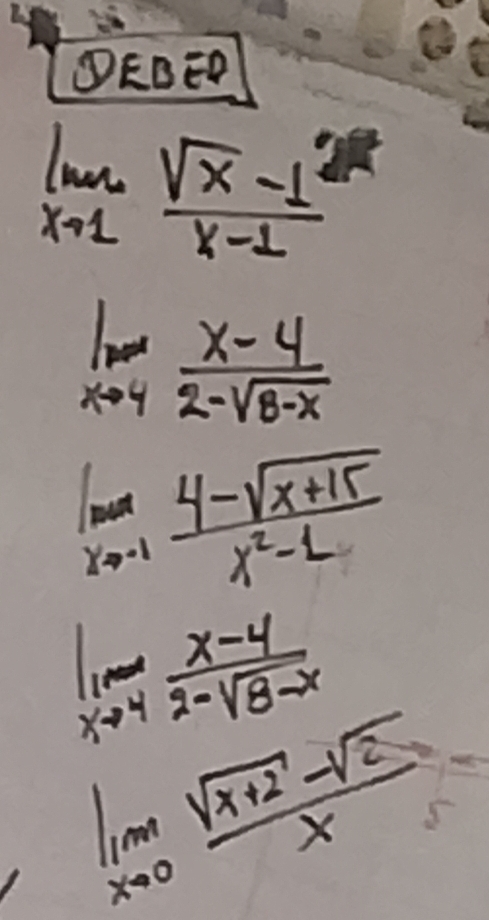 DEBER
lim x→1 (√x - 1)/(x - 1)
lim x→4 (x - 4)/(2 - √(8 - x))
lim x→-1 (4 - √(x + 15))/(x² - 1)
lim x→4 (x - 4)/(2 - √(8 - x))
lim x→0 (√(x + 2) - √2)/x